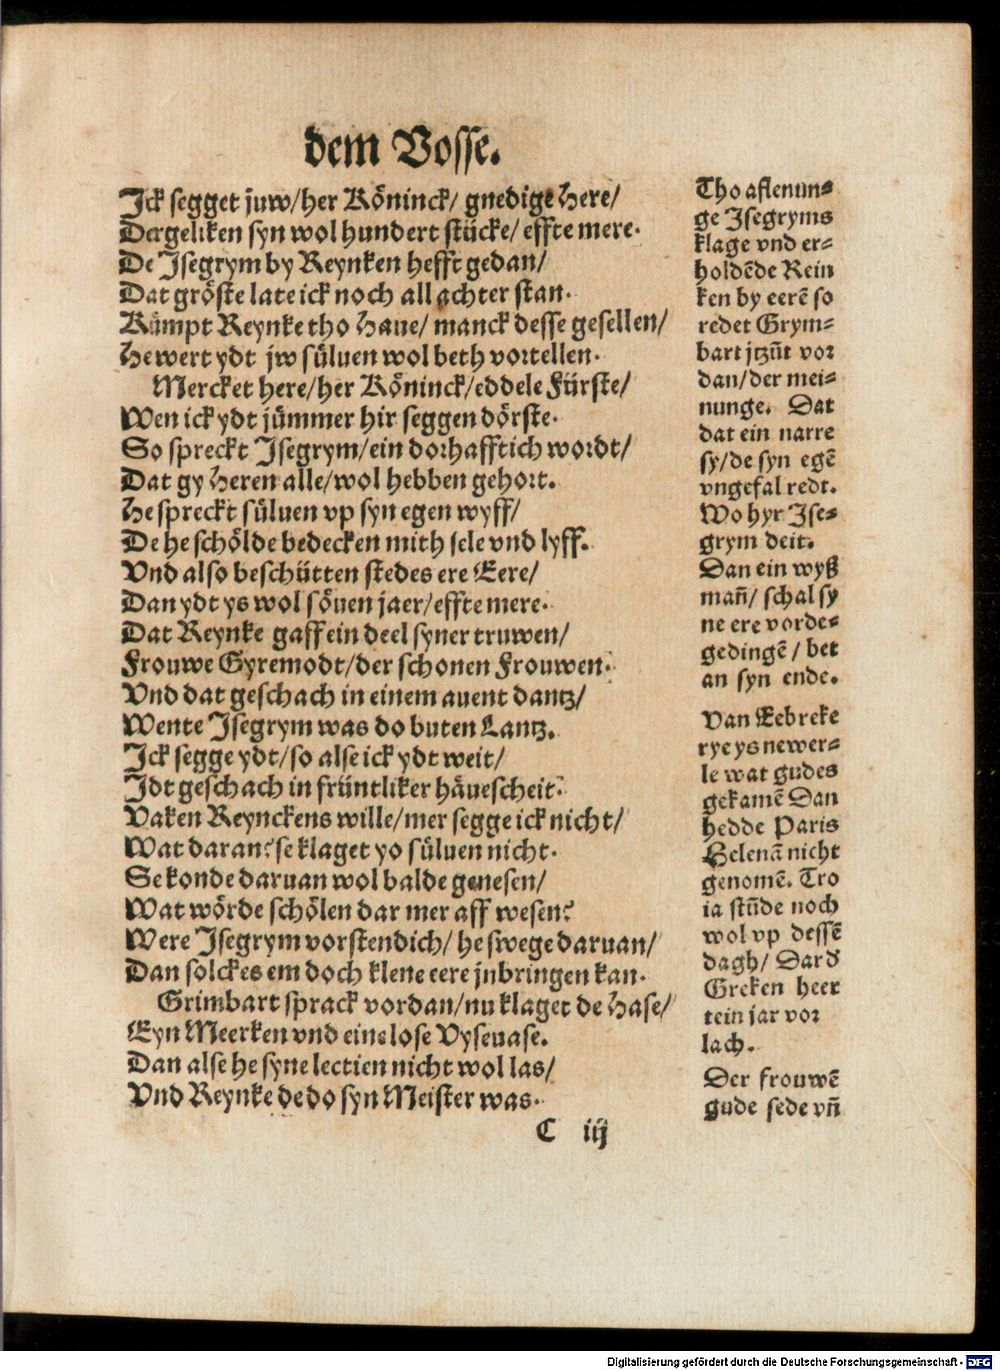 dem Vosse.
Jck segget juw/her Köninck/ gnedige Here/
Dergeliken syn wol hundert stücke/ effte mere.
De Jsegrym by Reynken hefft gedan/
Dat gröste late ick noch all achter stan.
Kümpt Reynke tho Haue/ manck desse gesellen/
He wert ydt jw sülven wol beth vortellen.
Mercket here/her Köninck/eddele Fürste/
Wen ick ydt jümmer hir seggen dörste.
So spreckt Jsegrym/ein dorhafftich wordt/
Dat gy Heren alle/wol hebben gehort.
He spreckt süluen vp syn egen wyff/
De he schölde bedecken mith sele vnd lyff.
Vnd also beschütten stedes ere Eere/
Dan ydt ys wol söuen jaer/effte mere.
Dat Reynke gaff ein deel syner truwen/
Frouwe Gyremodt/der schonen Frouwen.
Vnd dat geschach in einem auent dantz/
Wente Jsegrym was do buten Lantz.
Jck segge ydt/so alse ick ydt weit/
Jdt geschach in früntliker häuescheit.
Vaken Reynckens wille/mer segge ick nicht/
Wat daran? se klaget yo süluen nicht.
Se konde daruan wol balde genesen/
Wat wörde schölen dar mer aff wesen?
Were Jsegrym vorstendich/ he swege daruan/
Dan solckes em doch klene eere jnbringen kan.
Grimbart sprack vordan/nu klaget de Hase/
Eyn Meerken vnd eine lose Vyseuase.
Dan alse he syne lectien nicht wol las/
Vnd Reynke de do syn Meister was.
C iij
Tho aflenun=
ge Jsegryms
klage vnd er=
holdēde Rein
ken by eerē so
redet Grym=
bart jtzūt vor
dan/der mei=
nunge. Dat
dat ein narre
sy/de syn egē
vngefal redt.
Wo hyr Jse=
grym deit.
Dan ein wyß
mañ/ schal sy
ne ere vorde=
gedingē/ bet
an syn ende.
Van Eebreke
rye ys newer=
le wat gudes
gekamē Dan
hedde Paris
Helenā nicht
genomē. Tro
ia stūde noch
wol vp dessē
dagh/ Dar d
Greken heer
tein jar vor
lach.
Der frouwē
gude sede vñ
Digitalisierung gefördert durch die Deutsche Forschungsgemeinschaft - DFG